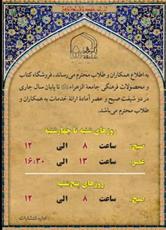 به اطلاع همکاران و طلاب محترم می‌رساند، فروشگاه کتاب
و محصولات فرهنگی جامعة الزهراء تا پایان سال جاری
در دو شیفت صبح و عصر آماده ارائه خدمات به همکاران و
طلاب محترم می‌باشد.
روزهای شنبه تا چهارشنبه
صبح: ساعت ۸ الی ۱۲
عصر: ساعت ۱۳ الی ۱۶:۳۰
روزهای پنج‌شنبه
صبح: ساعت ۸ الی ۱۲
اداره انتشارات